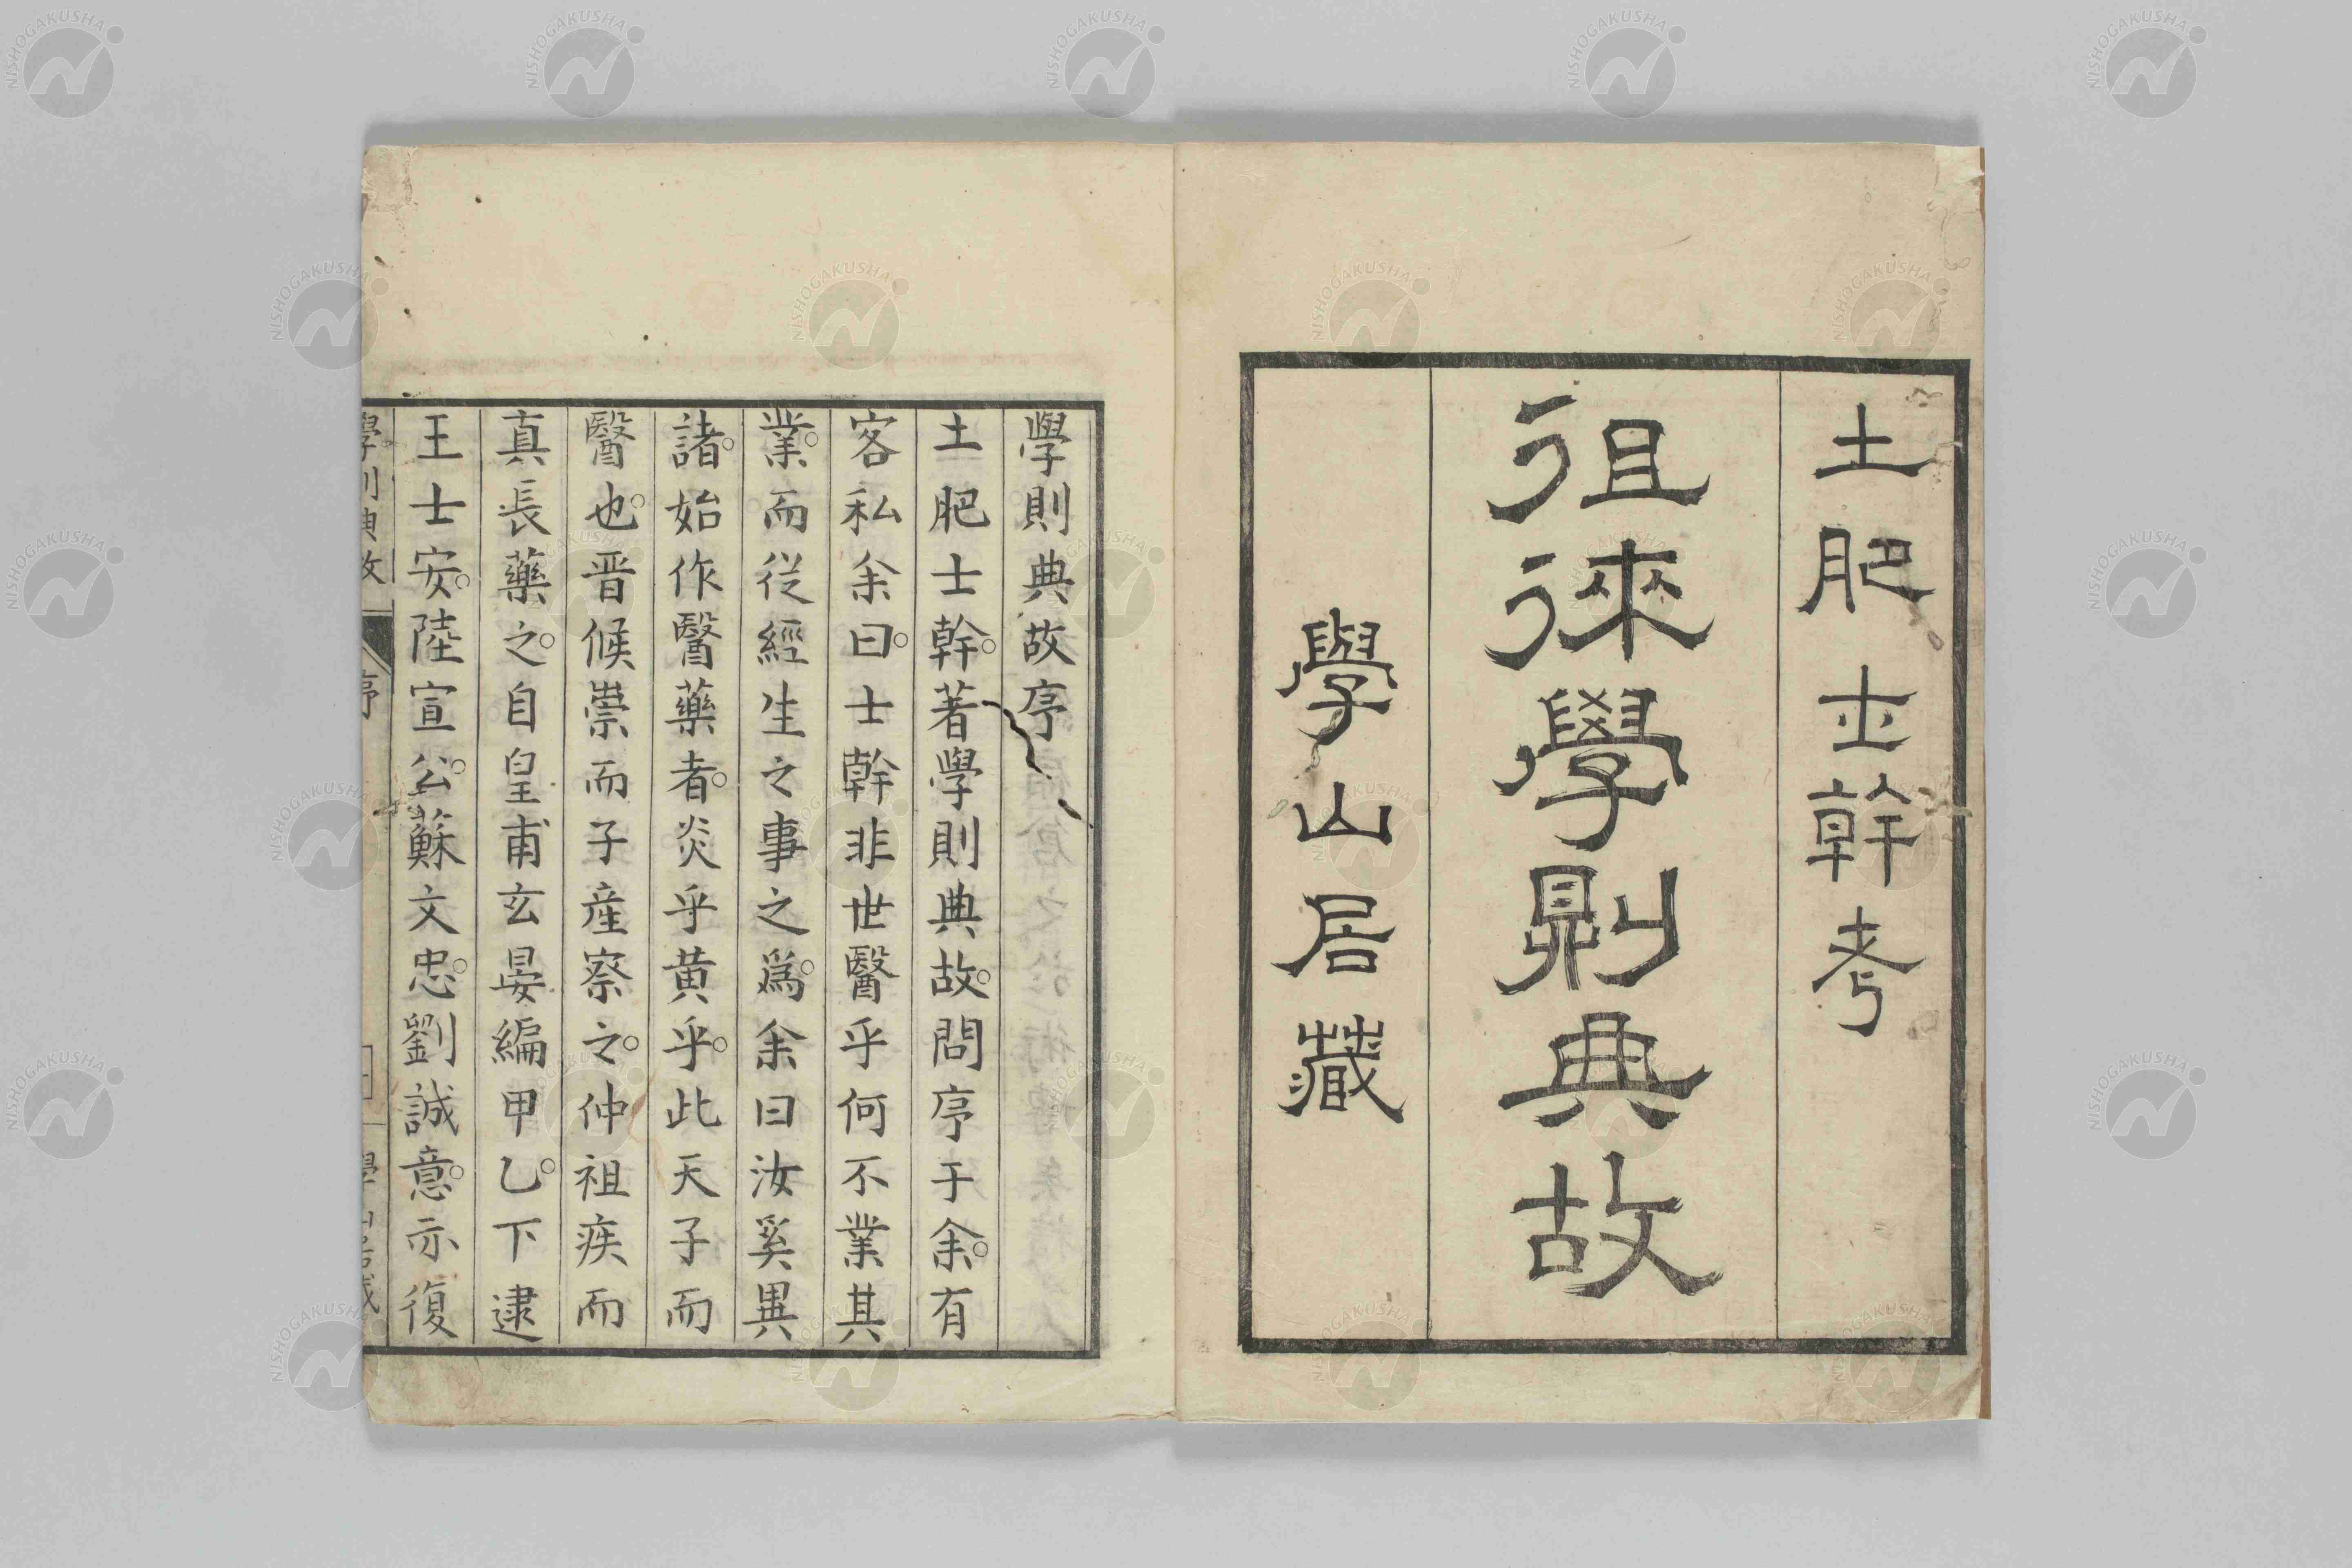 土肥士幹考
徂徠學則典故
學山居藏
學則典故序
土肥士幹。著學則典故。問序于余。有
客私余曰。士幹非世醫乎何不業其
業。而從經生之事之爲。余曰汝奚異
諸。始作醫藥者。炎乎黃乎。此天子而
醫也。晋候祟而子產察之。仲祖疾而
真長藥之。自皇甫玄晏編甲乙。下逮
王士安。陸宣公。蘇文忠。劉誠意。示復
NISHOGAKUSHA